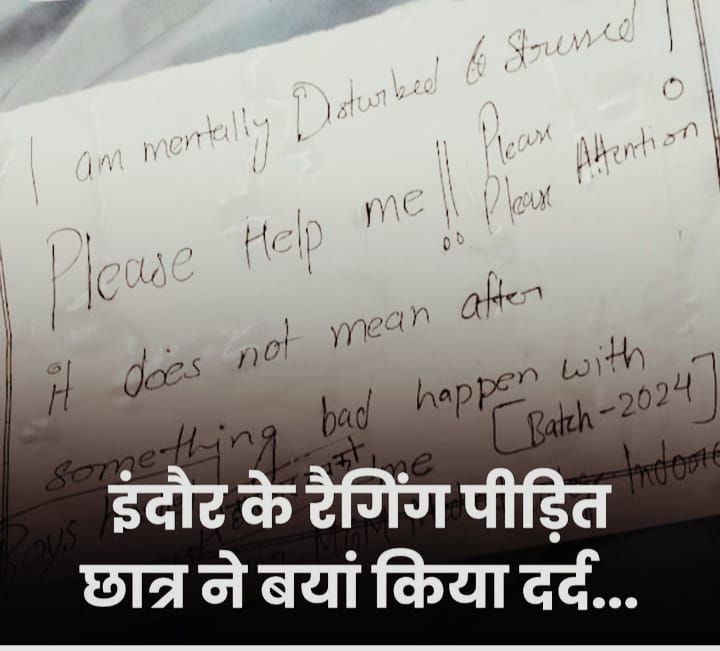 I am mentally Disturbed & Stressed !
Please Help me !! Please
Please Attention
it does not mean after
something bad happen with
me [Batch-2024]
Boys Indore
इंदौर के रैगिंग पीड़ित
छात्र ने बयां किया दर्द...